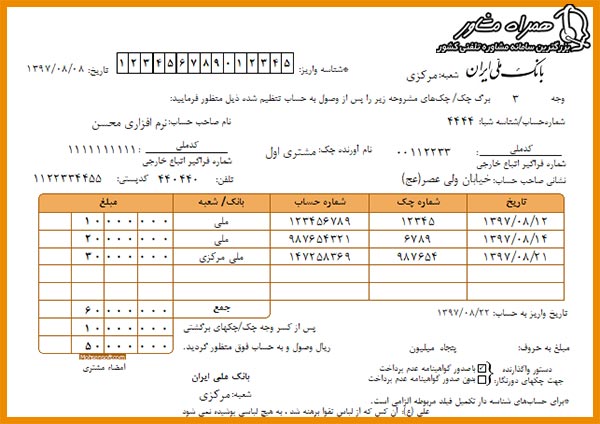 همراه مشاور
بزرگترین سامانه مشاوره تلفنی کشور
بانک ملی ایران شعبه: مرکزی *شناسه واریز: ۱ ۲ ۳ ۴ ۵ ۶ ۷ ۸ ۹ ۰ ۱ ۲ ۳ ۴ ۵ تاریخ: ۱۳۹۷/۰۸/۰۸
وجه ۳ برگ چک/ چک‌های مشروحه زیر را پس از وصول به حساب تنظیم شده ذیل منظور فرمایید:
شماره‌حساب/شناسه شبا: ۴۴۴۴ نام صاحب حساب: نرم افزاری محسن
کدملی
شماره فراگیر اتباع خارجی ۰۰۱۱۲۲۳۳ نام آورنده چک: مشتری اول کدملی
شماره فراگیر اتباع خارجی ۱۱۱۱۱۱۱۱۱۱
نشانی صاحب حساب: خیابان ولی عصر(عج) تلفن: ۴۴۰۴۴۰ کدپستی: ۱۱۲۲۳۳۴۴۵۵
تاریخ شماره چک شماره حساب بانک/ شعبه مبلغ
۱۳۹۷/۰۸/۱۲ ۱۲۳۴۵ ۱۲۳۴۵۶۷۸۹ ملی ۱۰۰۰۰۰۰۰
۱۳۹۷/۰۸/۱۴ ۶۷۸۹ ۹۸۷۶۵۴۳۲۱ ملی ۲۰۰۰۰۰۰۰
۱۳۹۷/۰۸/۲۱ ۹۸۷۶۵۴ ۱۴۷۲۵۸۳۶۹ ملی مرکزی ۳۰۰۰۰۰۰۰
تاریخ واریز به حساب: ۱۳۹۷/۰۸/۲۲ جمع ۶۰۰۰۰۰۰۰
پس از کسر وجه چک/چکهای برگشتی ۱۰۰۰۰۰۰۰
مبلغ به حروف: پنجاه میلیون ریال وصول و به حساب فوق منظور گردید. ۵۰۰۰۰۰۰۰
امضاء مشتری
دستور واگذارنده باصدور گواهینامه عدم پرداخت
جهت چکهای دورنگار: بدون صدور گواهینامه عدم پرداخت
بانک ملی ایران
شعبه: مرکزی
*برای حساب‌های شناسه دار تکمیل فیلد مربوطه الزامی است.
علی (ع): آن کس که از لباس تقوا برهنه شد ، به هیچ لباسی پوشیده نمی شود